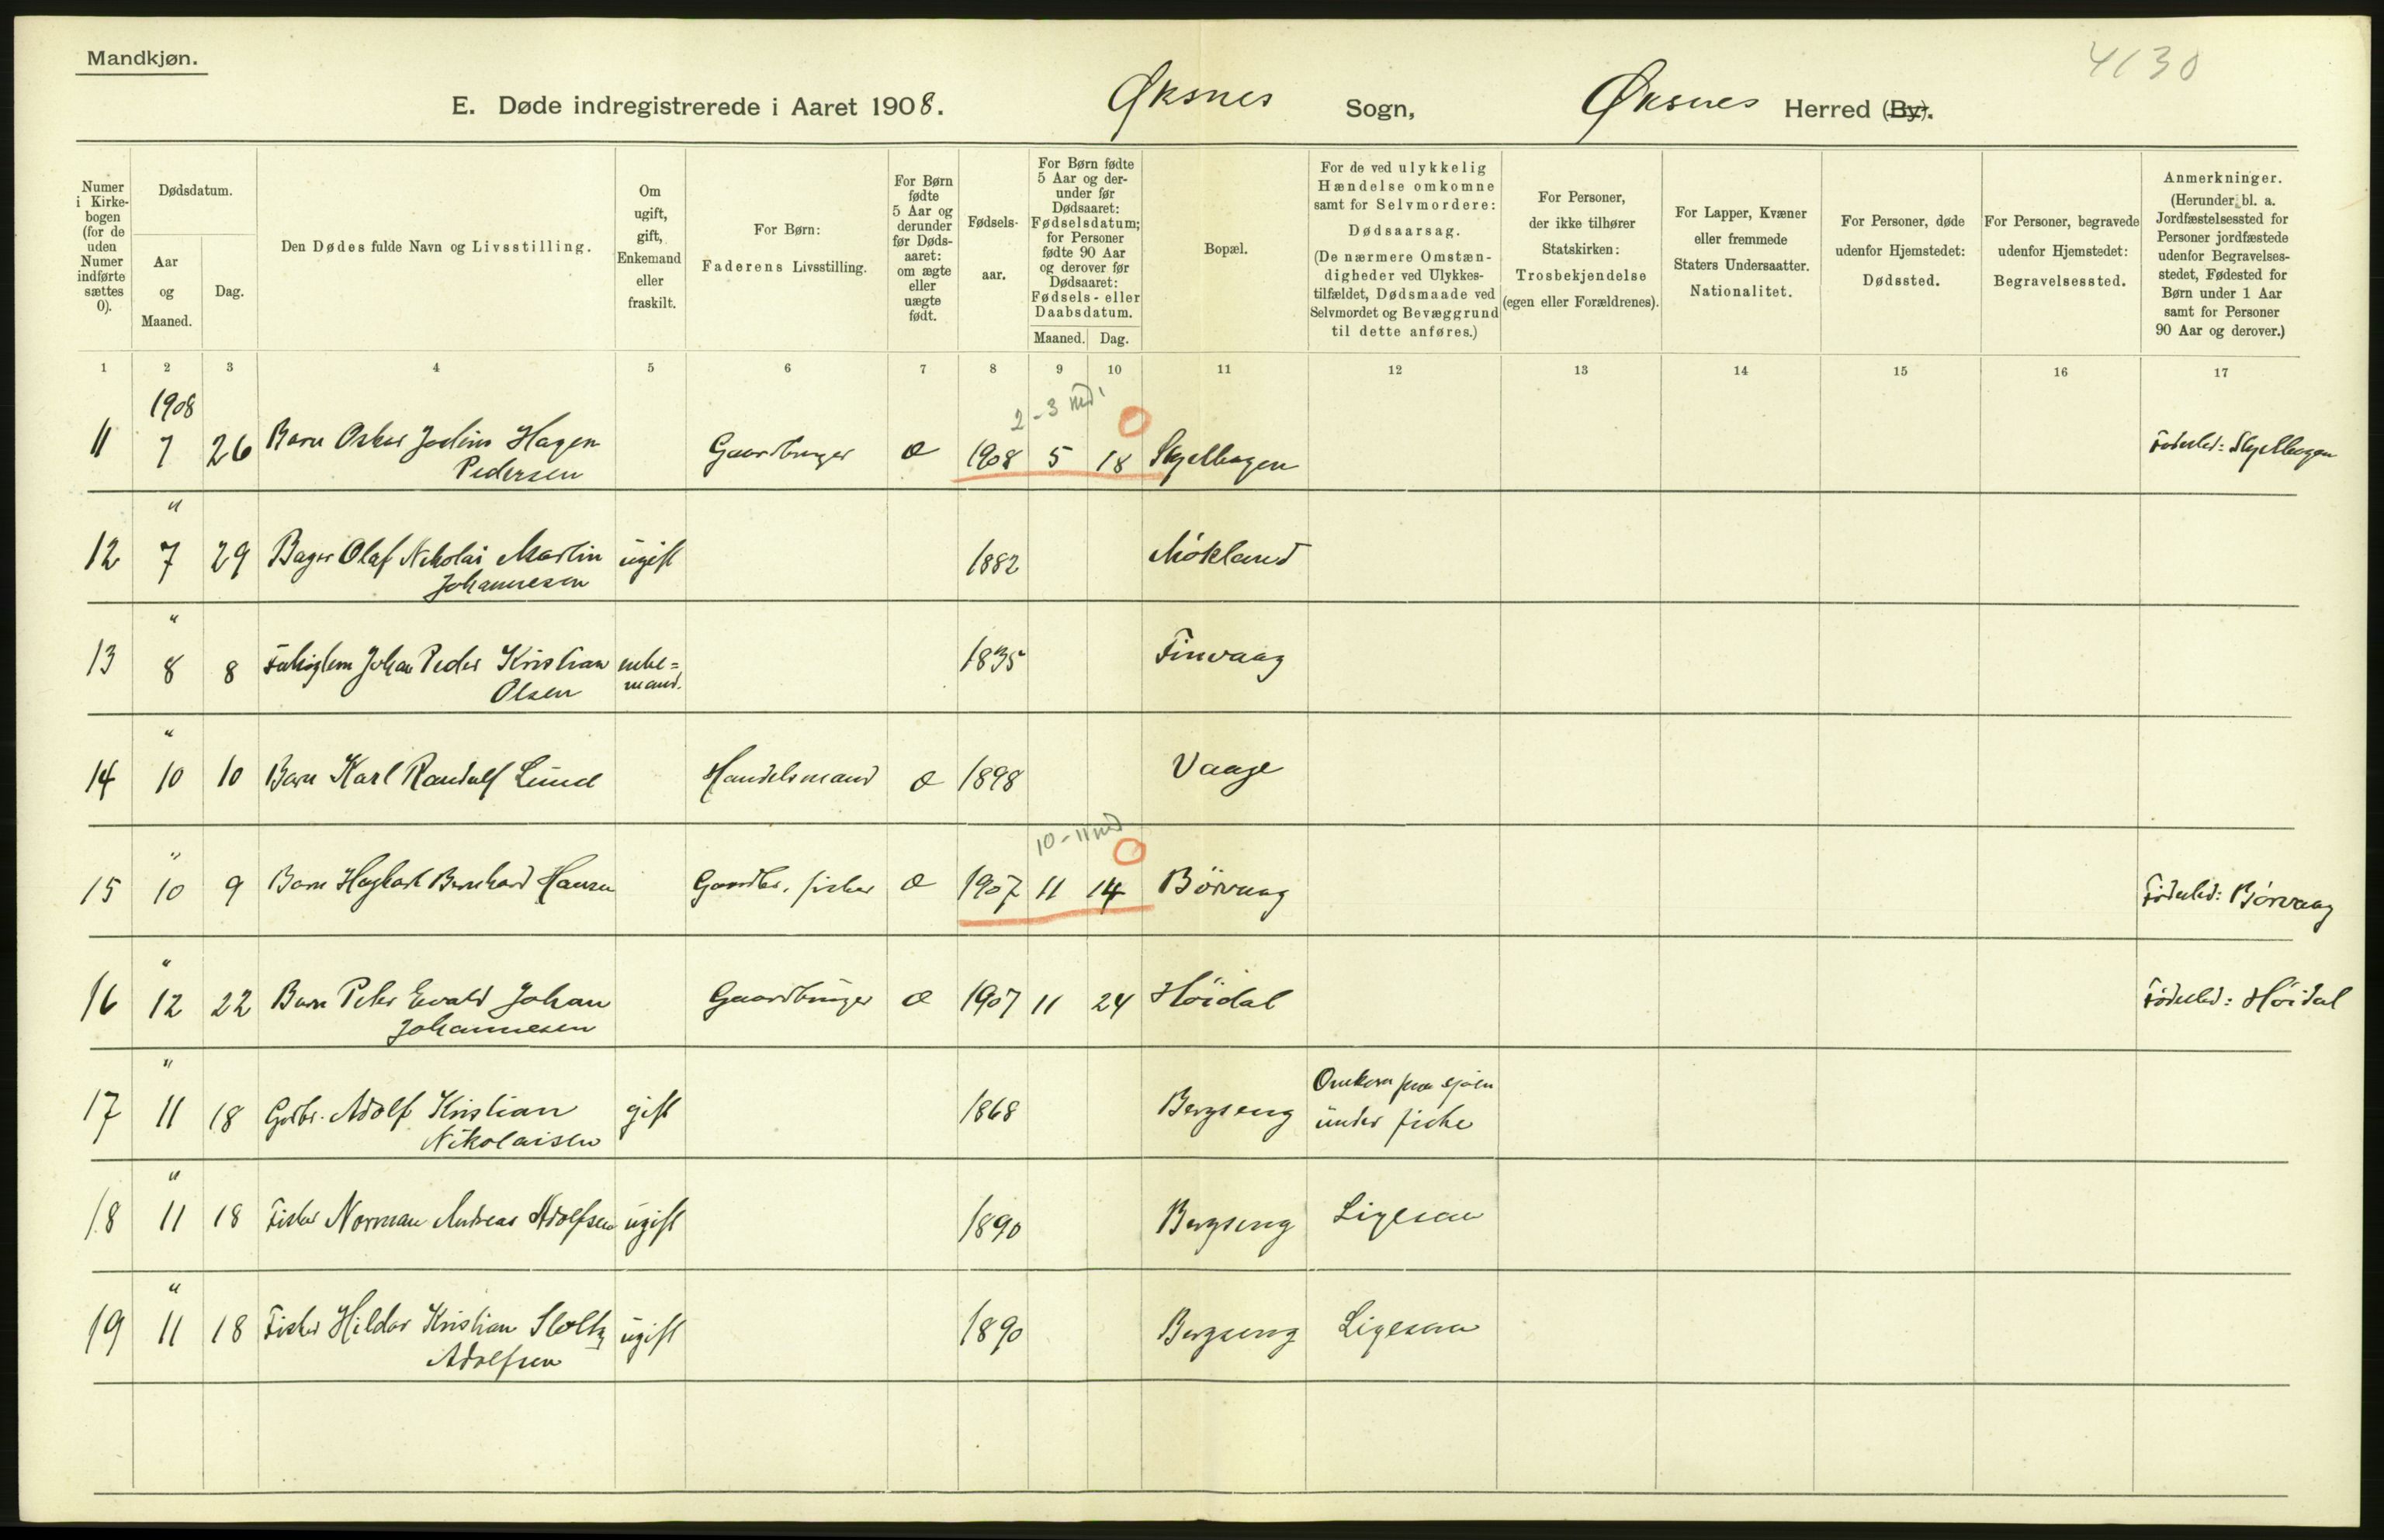 Mandkjøn.
4130
E. Døde indregistrerede i Aaret 1908. Øksnes Sogn, Øksnes Herred (By).
Numer i Kirkebogen (for de uden Numer indførte sættes 0).
Dødsdatum.
Aar og Maaned.
Dag.
Den Dødes fulde Navn og Livsstilling.
Om ugift, gift, Enkemand eller fraskilt.
For Børn: Faderens Livsstilling.
For Børn fødte 5 Aar og derunder før Dødsaaret: om ægte eller uægte født.
Fødselsaar.
For Børn fødte 5 Aar og derunder før Dødsaaret: Fødselsdatum; for Personer fødte 90 Aar og derover før Dødsaaret: Fødsels- eller Daabsdatum.
Maaned. Dag.
Bopæl.
For de ved ulykkelig Hændelse omkomne samt for Selvmordere: Dødsaarsag. (De nærmere Omstændigheder ved Ulykkestilfældet, Dødsmaade ved Selvmordet og Bevæggrund til dette anføres.)
For Personer, der ikke tilhører Statskirken: Trosbekjendelse (egen eller Forældrenes).
For Lapper, Kvæner eller fremmede Staters Undersaatter. Nationalitet.
For Personer, døde udenfor Hjemstedet: Dødssted.
For Personer, begravede udenfor Hjemstedet: Begravelsessted.
Anmerkninger. (Herunder bl. a. Jordfæstelsessted for Personer jordfæstede udenfor Begravelsesstedet, Fødested for Børn under 1 Aar samt for Personer 90 Aar og derover.)
1 2 3 4 5 6 7 8 9 10 11 12 13 14 15 16 17
1908
2-3 md.
11 7 26 Barn Oskar Hagen Gaardbruger æ 1908 5 18 Skjelhagen Fødested: Skjelhagen
Pedersen
"
12 7 29 Bager Olaf Nikolai Martin ugift 1882 Mökland
Johannesen
"
13 8 8 Johan Peder Kristian enke= 1835 Finvaag
Olsen mand.
"
14 10 10 Barn Karl Randulf Lund Handelsmand æ 1898 Vaage
10-11 md
"
15 10 9 Barn Hagbart Bernhard Hansen Gaardbr. fisker æ 1907 11 14 Börvaag Födested: Börvaag
"
16 12 22 Barn Peter Evald Johan Gaardbruger æ 1907 11 24 Höidal Födested: Höidal
Johannesen
"
17 11 18 Gdbr. Adolf Kristian gift 1868 Bergseng Omkom paa sjöen
Nikolaisen under fiske
"
18 11 18 Fisker Norman Andreas Adolfsen ugift 1890 Bergseng Ligesaa
"
19 11 18 Fisker Hildor Kristian Stoltz ugift 1890 Bergseng Ligesaa
Adolfsen